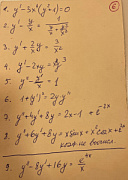 6
1. y' - 3x²(y²+1) = 0
2. y' - y/x =
3. y' + 2/x y = 3/x²
4. y' - 2xy =
5. y'' - y'/x = 1
6. 1 + (y')² = 2y y''
7. y'' + 4y' + 8y = 2x - 1 + e^(-2x)
8. y'' + 6y' + 8y =
9. y'' - 8y' + 16y = e^(4x)/x